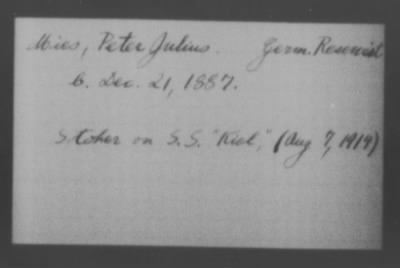 Mies, Peter Julius. Germ. Reservist
b. Dec. 21, 1887.
Stoker on S.S. "Kiel," (Aug 7, 1914)